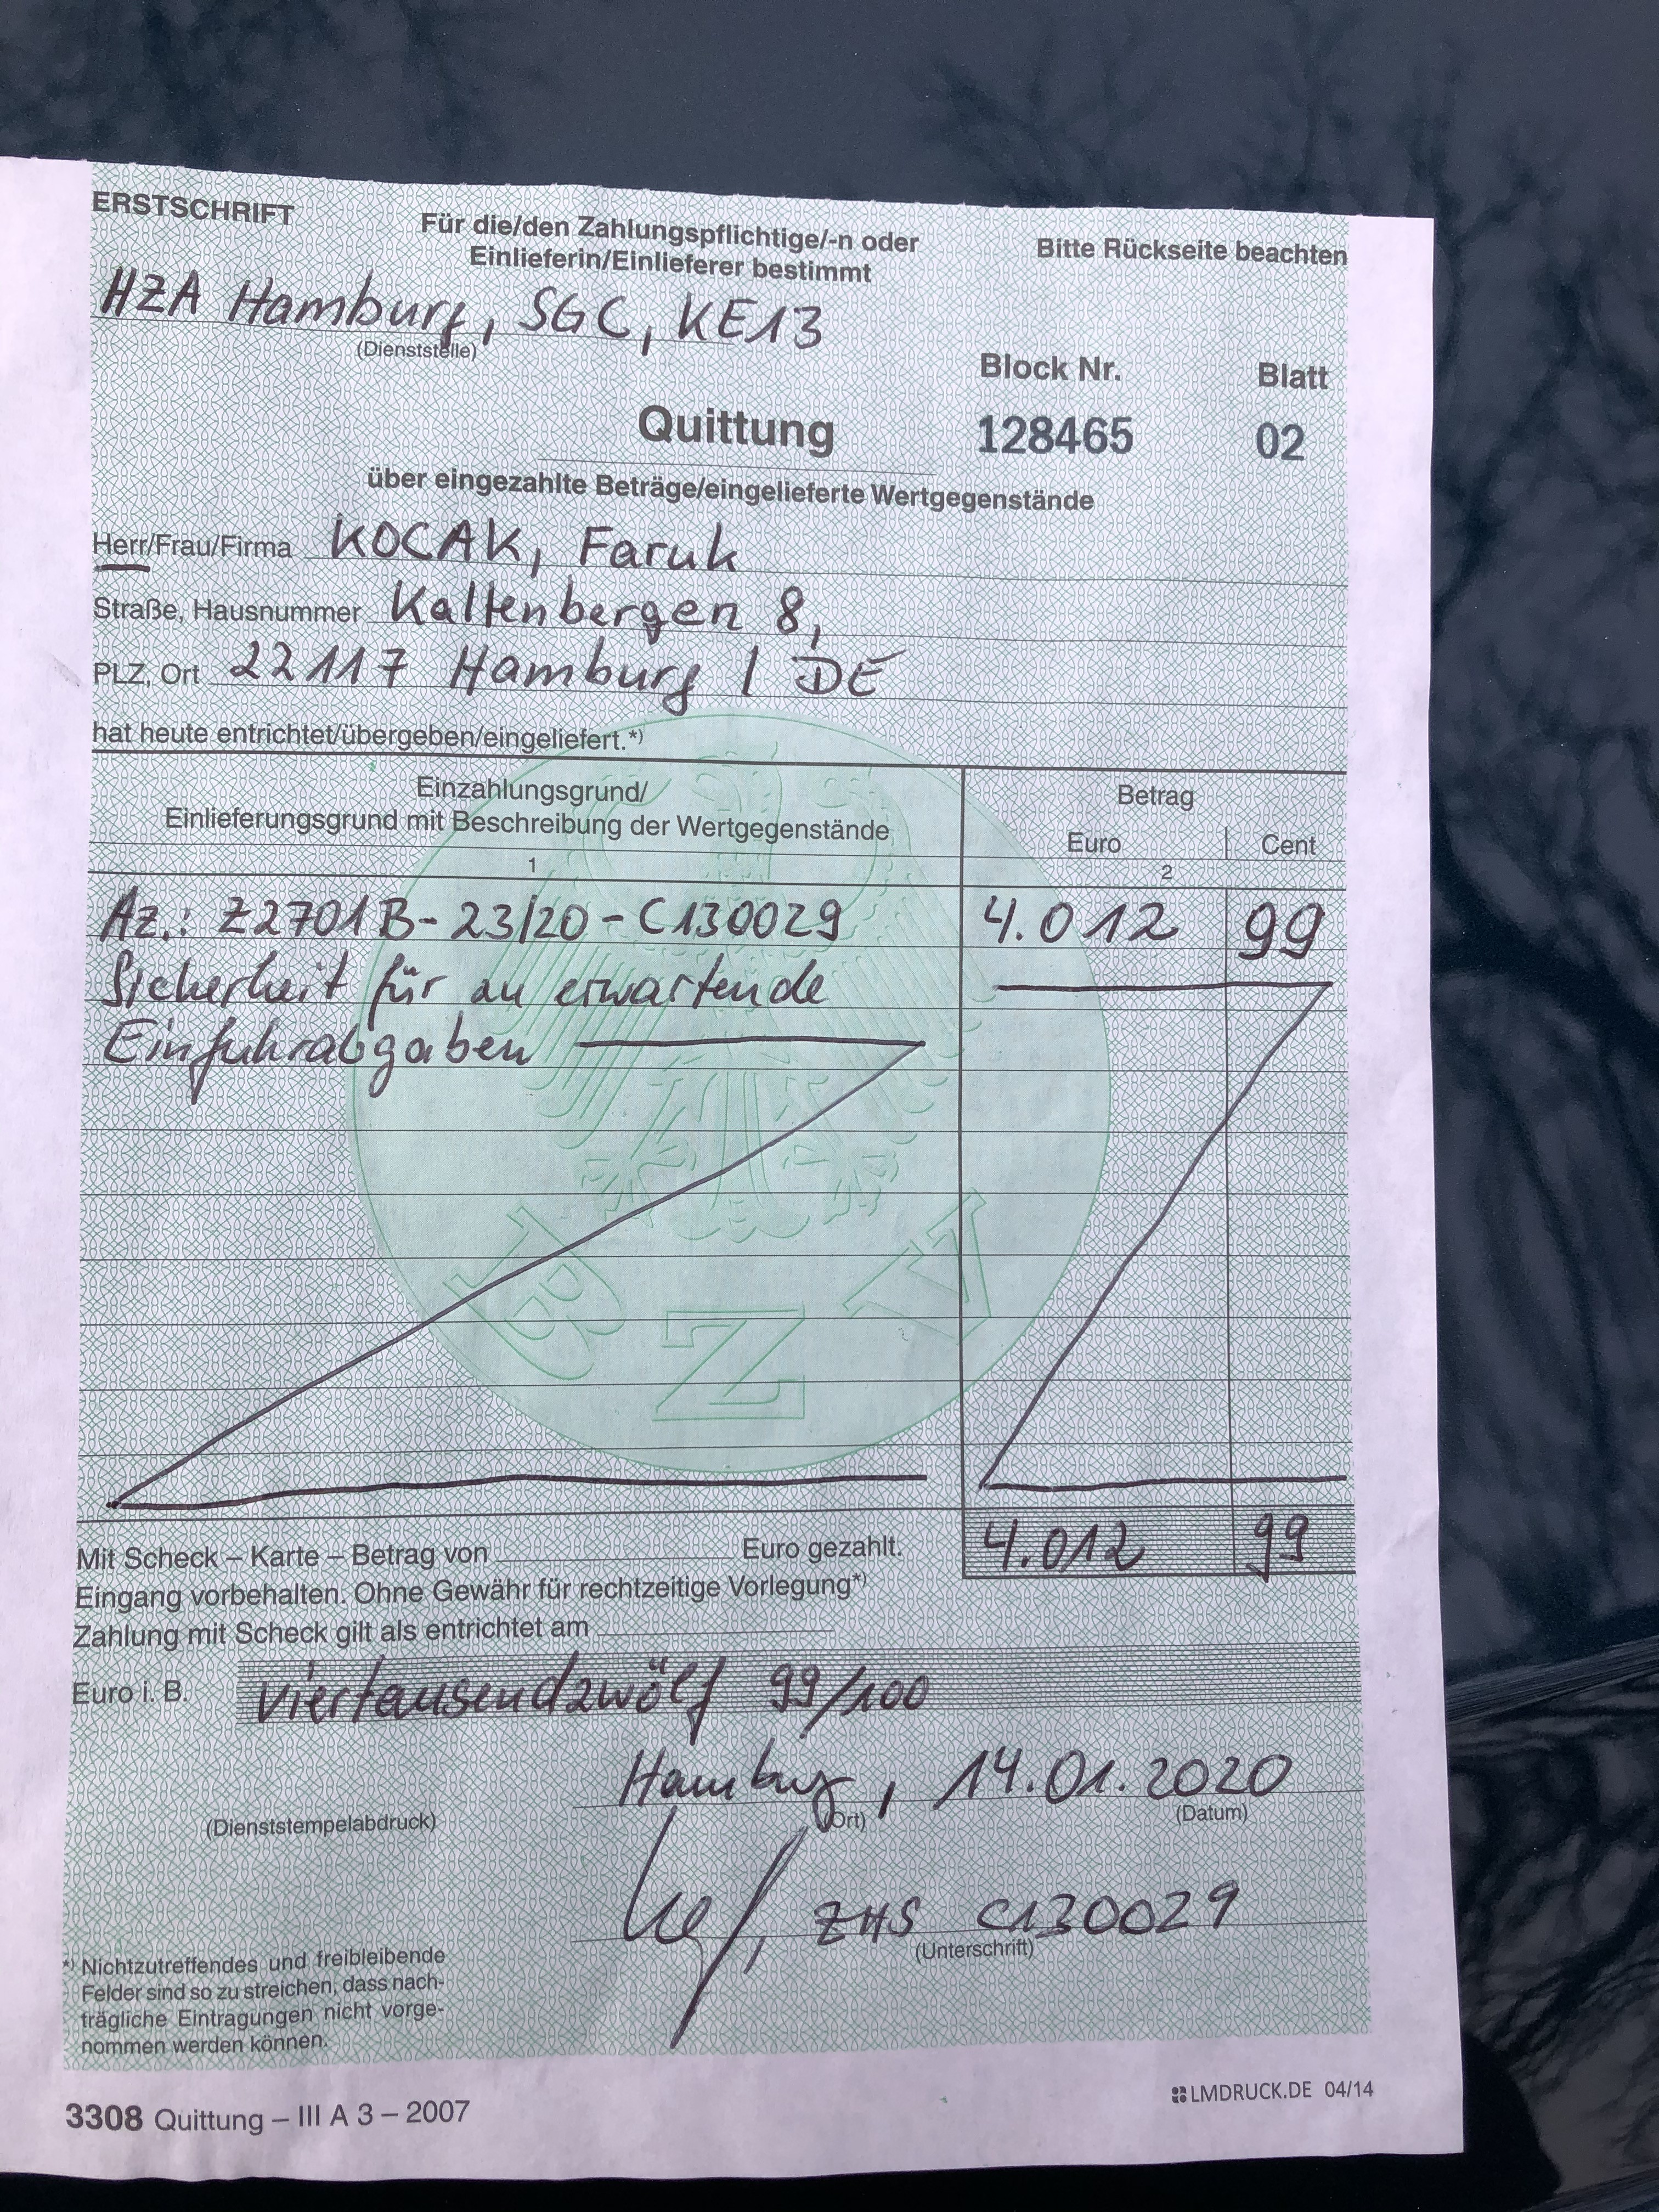 ERSTSCHRIFT
Für die/den Zahlungspflichtige/-n oder
Einlieferin/Einlieferer bestimmt
Bitte Rückseite beachten
HZA Hamburg, SGC, KE13
(Dienststelle)
Block Nr. Blatt
Quittung 128465 02
über eingezahlte Beträge/eingelieferte Wertgegenstände
Herr/Frau/Firma KOCAK, Faruk
Straße, Hausnummer Kaltenbergen 8,
PLZ, Ort 22117 Hamburg / DE
hat heute entrichtet/übergeben/eingeliefert.*)
Einzahlungsgrund/
Einlieferungsgrund mit Beschreibung der Wertgegenstände
Betrag
Euro Cent
1 2
Az.: Z2701B-23/20-C130029 4.012 99
Sicherheit für zu erwartende
Einfuhrabgaben
BZV
4.012 99
Mit Scheck – Karte – Betrag von Euro gezahlt.
Eingang vorbehalten. Ohne Gewähr für rechtzeitige Vorlegung*)
Zahlung mit Scheck gilt als entrichtet am
Euro i. B. viertausendzwölf 99/100
Hamburg, 14.01.2020
(Dienststempelabdruck) (Ort) (Datum)
ZHS C130029
(Unterschrift)
*) Nichtzutreffendes und freibleibende
Felder sind so zu streichen, dass nach-
trägliche Eintragungen nicht vorge-
nommen werden können.
LMDRUCK.DE 04/14
3308 Quittung – III A 3 – 2007